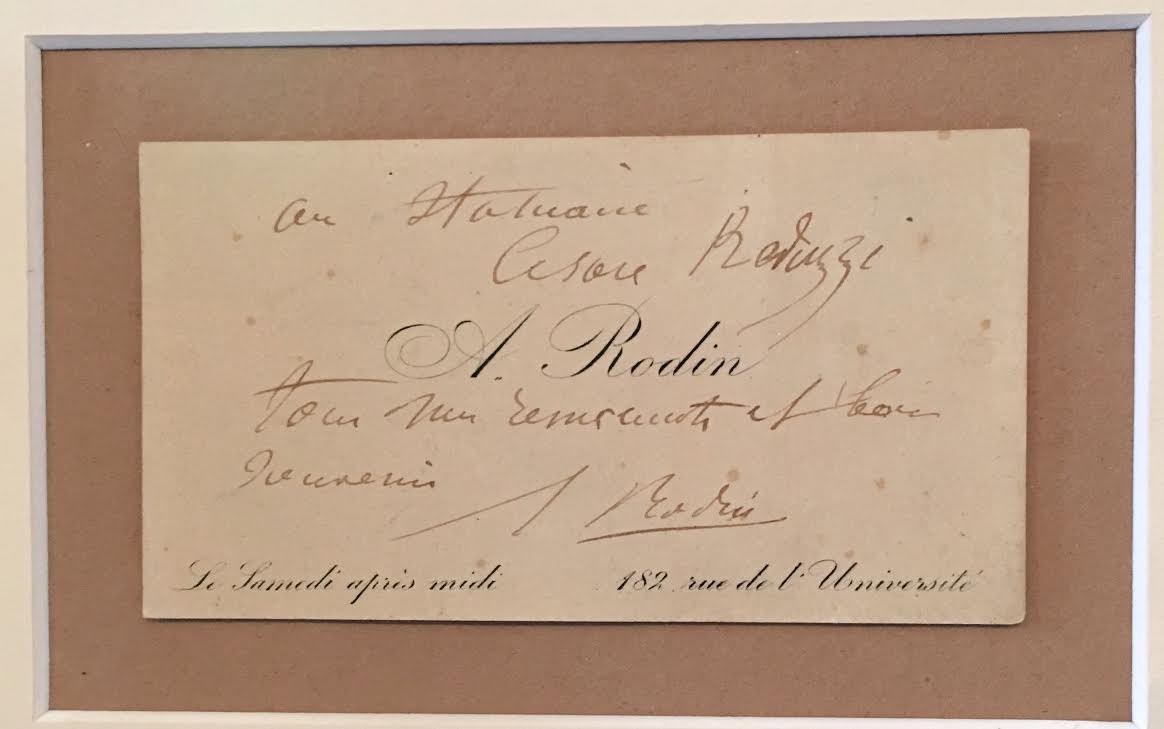 au Statuaire
Cesare Reduzzi
A. Rodin
tous mes remerciements et bon
souvenir A Rodin
Le Samedi après midi 182 rue de l'Université